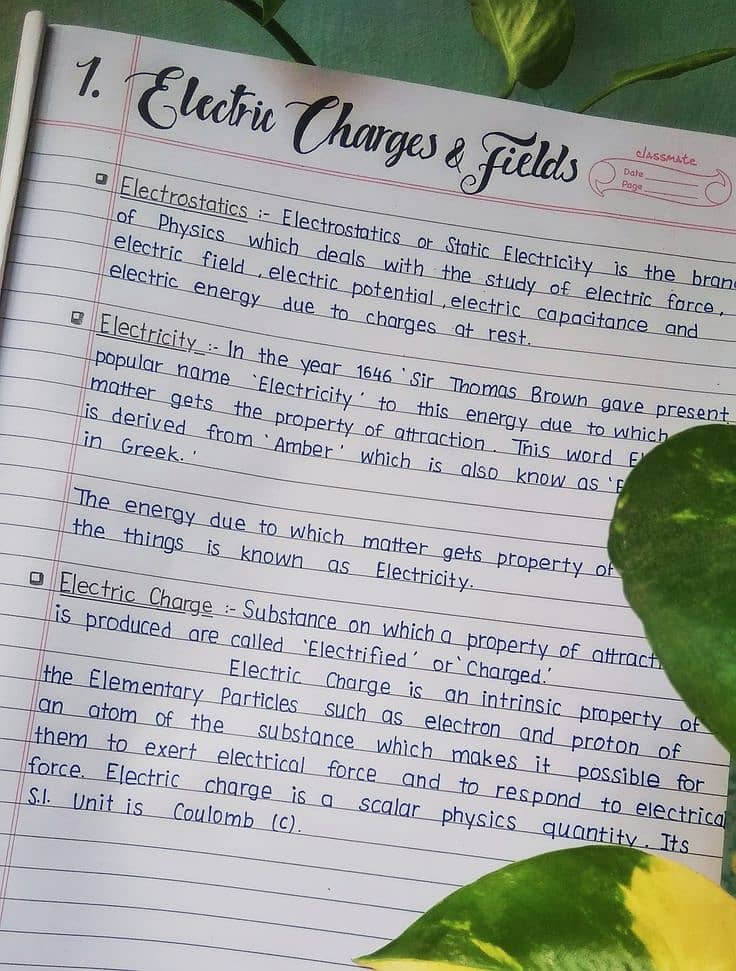 1. Electric Charges & Fields
classmate
Date
Page
Electrostatics :- Electrostatics or Static Electricity is the bran
of Physics which deals with the study of electric force,
electric field, electric potential, electric capacitance and
electric energy due to charges at rest.
Electricity :- In the year 1646 'Sir Thomas Brown gave present
popular name 'Electricity' to this energy due to which
matter gets the property of attraction. This word
is derived from 'Amber' which is also know as
in Greek.'
The energy due to which matter gets property of
the things is known as Electricity.
Electric Charge :- Substance on which a property of attracti
is produced are called 'Electrified' or 'Charged.'
Electric Charge is an intrinsic property of
the Elementary Particles such as electron and proton of
an atom of the substance which makes it possible for
them to exert electrical force and to respond to electrical
force. Electric charge is a scalar physics quantity. Its
S.I. Unit is Coulomb (c).